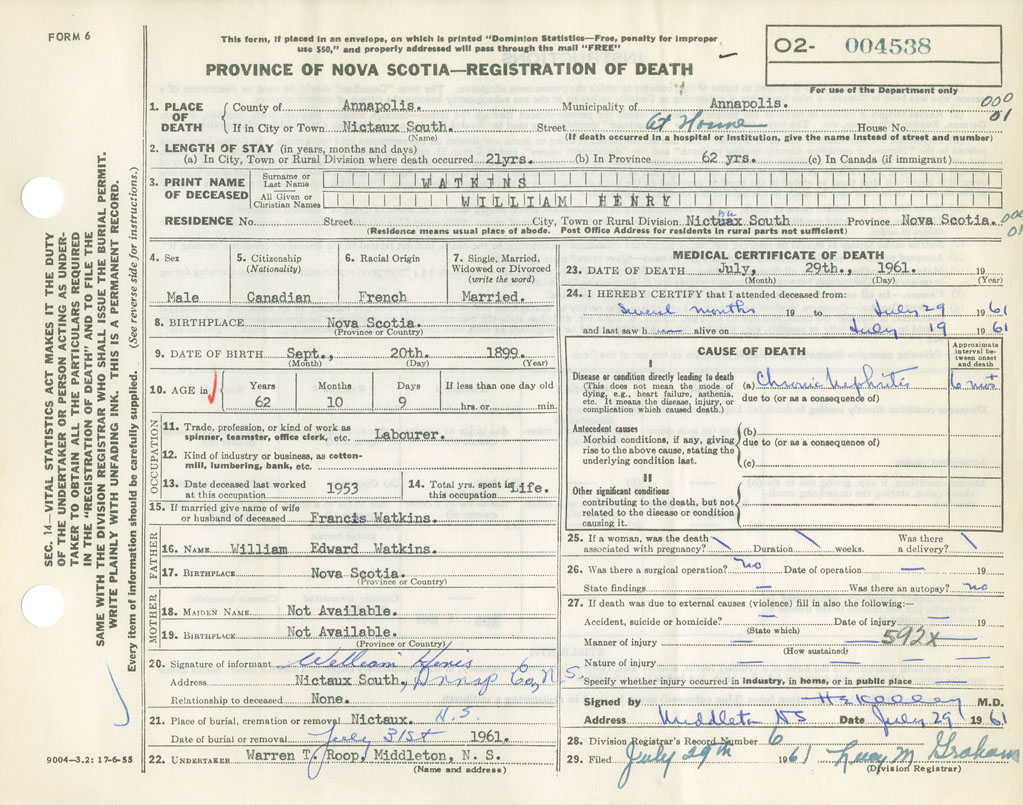 FORM 6
This form, if placed in an envelope, on which is printed "Dominion Statistics—Free, penalty for improper
use $50," and properly addressed will pass through the mail "FREE"
PROVINCE OF NOVA SCOTIA—REGISTRATION OF DEATH
O2- 004538
For use of the Department only
1. PLACE OF DEATH { County of Annapolis. Municipality of Annapolis. 000
If in City or Town Nictaux South. Street At Home House No. 01
(Name) (If death occurred in a hospital or institution, give the name instead of street and number)
2. LENGTH OF STAY (in years, months and days)
(a) In City, Town or Rural Division where death occurred 21yrs. (b) In Province 62 yrs. (c) In Canada (if immigrant)
3. PRINT NAME OF DECEASED
Surname or Last Name WATKINS
All Given or Christian Names WILLIAM HENRY
RESIDENCE No. Street City, Town or Rural Division Nictuax au South Province Nova Scotia. 000
(Residence means usual place of abode. Post Office Address for residents in rural parts not sufficient) 01
4. Sex
Male
5. Citizenship
(Nationality)
Canadian
6. Racial Origin
French
7. Single, Married,
Widowed or Divorced
(write the word)
Married.
8. BIRTHPLACE Nova Scotia.
(Province or Country)
9. DATE OF BIRTH Sept., 20th. 1899.
(Month) (Day) (Year)
10. AGE in { Years Months Days If less than one day old
62 10 9 hrs. or min.
OCCUPATION
11. Trade, profession, or kind of work as
spinner, teamster, office clerk, etc. Labourer.
12. Kind of industry or business, as cotton-
mill, lumbering, bank, etc.
13. Date deceased last worked
at this occupation 1953
14. Total yrs. spent in
this occupation Life.
15. If married give name of wife
or husband of deceased Francis Watkins.
FATHER
16. NAME William Edward Watkins.
17. BIRTHPLACE Nova Scotia.
(Province or Country)
MOTHER
18. MAIDEN NAME Not Available.
19. BIRTHPLACE Not Available.
(Province or Country)
20. Signature of informant William
Address Nictaux South, Annap Co, N.S.
Relationship to deceased None.
21. Place of burial, cremation or removal Nictaux. N.S.
Date of burial or removal July 31st 1961.
22. UNDERTAKER Warren T. Roop, Middleton, N. S.
(Name and address)
MEDICAL CERTIFICATE OF DEATH
23. DATE OF DEATH July, 29th., 1961. 19
(Month) (Day) (Year)
24. I HEREBY CERTIFY that I attended deceased from:
Several months 19 to July 29 1961
and last saw h alive on July 19 1961
CAUSE OF DEATH
Approximate
interval be-
tween onset
and death
I
Disease or condition directly leading to death
(This does not mean the mode of
dying, e.g., heart failure, asthenia,
etc. It means the disease, injury, or
complication which caused death.)
(a) Chronic Nephritis 6 mos +
due to (or as a consequence of)
Antecedent causes
Morbid conditions, if any, giving
rise to the above cause, stating the
underlying condition last.
(b)
due to (or as a consequence of)
(c)
II
Other significant conditions
contributing to the death, but not
related to the disease or condition
causing it.
25. If a woman, was the death
associated with pregnancy? Duration weeks. Was there
a delivery?
26. Was there a surgical operation? no Date of operation — 19
State findings — Was there an autopsy? no
27. If death was due to external causes (violence) fill in also the following:—
Accident, suicide or homicide? — Date of injury — 19
(State which)
Manner of injury — 592X
(How sustained)
Nature of injury — —
Specify whether injury occurred in industry, in home, or in public place —
Signed by H E Kelley M.D.
Address Middleton NS Date July 29 1961
28. Division Registrar's Record Number 6
29. Filed July 29th 1961 Lucy M Graham
(Division Registrar)
SEC. 14—VITAL STATISTICS ACT MAKES IT THE DUTY
OF THE UNDERTAKER OR PERSON ACTING AS UNDER-
TAKER TO OBTAIN ALL THE PARTICULARS REQUIRED
IN THE "REGISTRATION OF DEATH" AND TO FILE THE
SAME WITH THE DIVISION REGISTRAR WHO SHALL ISSUE THE BURIAL PERMIT.
WRITE PLAINLY WITH UNFADING INK. THIS IS A PERMANENT RECORD.
Every item of information should be carefully supplied. (See reverse side for instructions.)
9004—3.2: 17-6-55